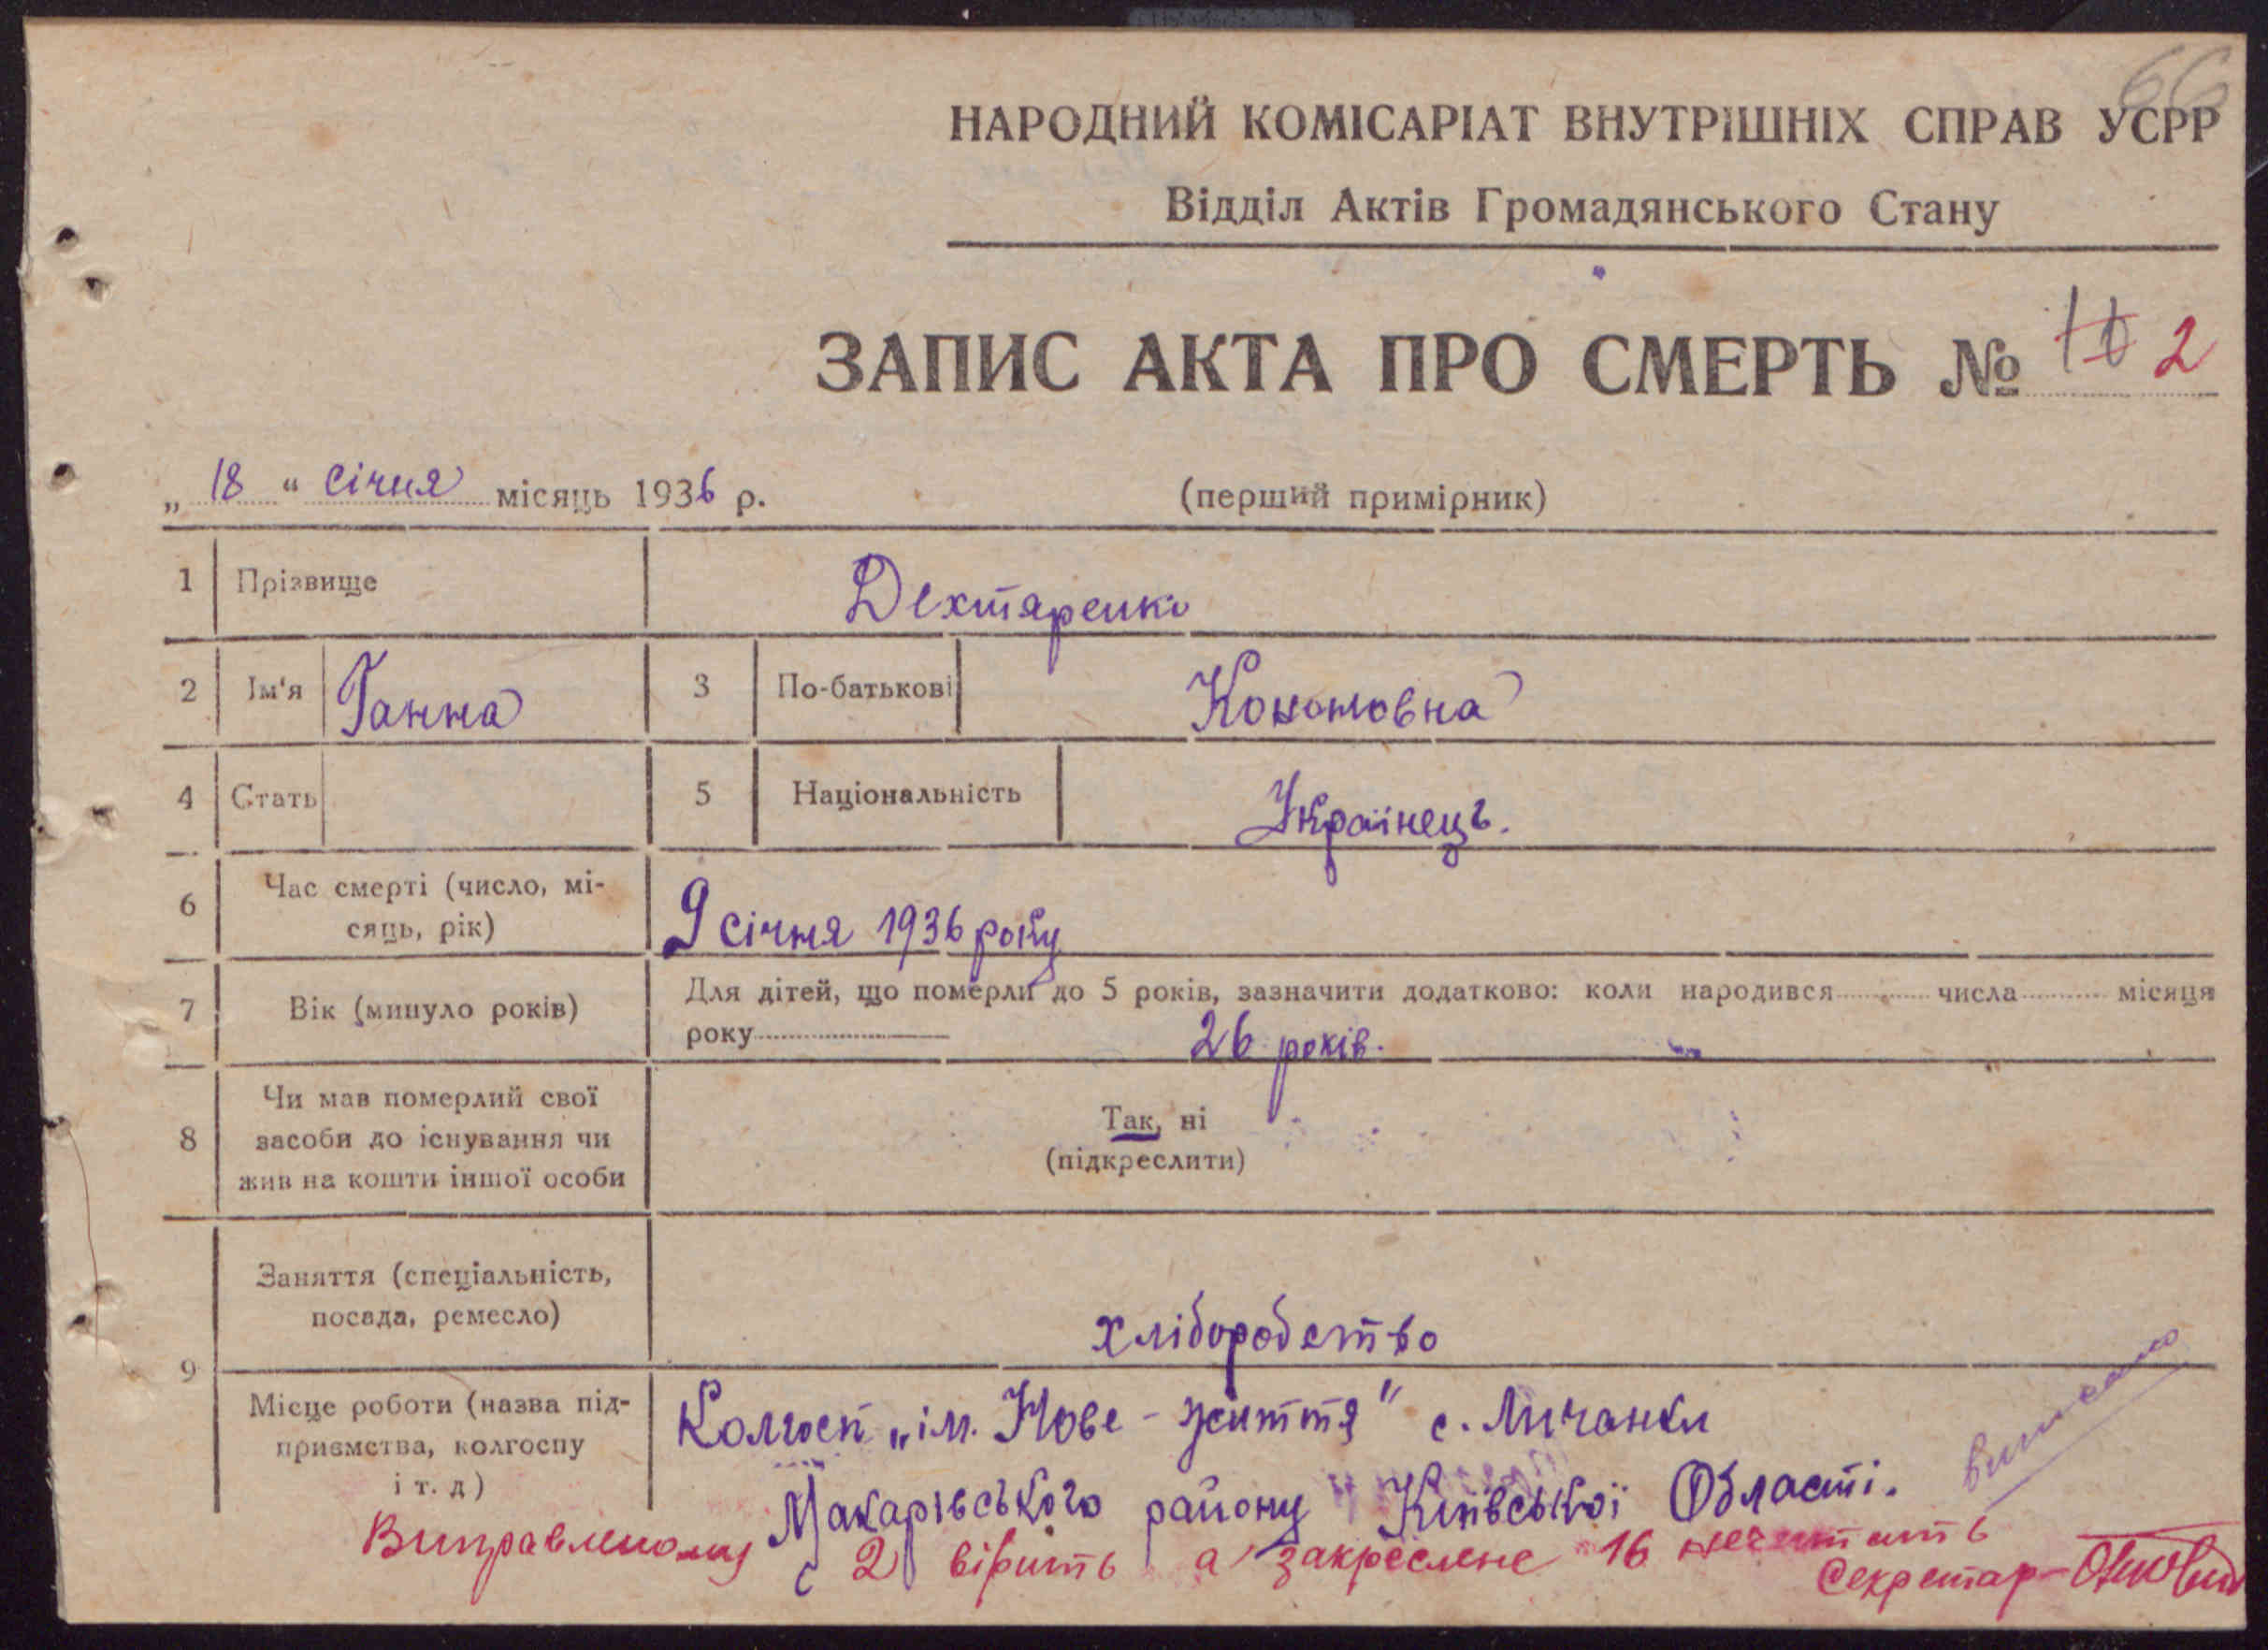 66
НАРОДНИЙ КОМІСАРІАТ ВНУТРІШНІХ СПРАВ УСРР
Відділ Актів Громадянського Стану
ЗАПИС АКТА ПРО СМЕРТЬ № 2
„ 18 " січня місяць 1936 р. (перший примірник)
1 Прізвище Дехтяренко
2 Ім'я Ганна 3 По-батькові Кононовна
4 Стать 5 Національність Українець.
6 Час смерті (число, мі-
сяць, рік) 9 січня 1936 року
7 Вік (минуло років) Для дітей, що померли до 5 років, зазначити додатково: коли народився числа місяця
року 26 років.
8 Чи мав померлий свої
засоби до існування чи
жив на кошти іншої особи
Так, ні
(підкреслити)
9 Заняття (спеціальність,
посада, ремесло) хліборобство
Місце роботи (назва під-
приємства, колгоспу
і т. д)
Колгосп „ім. Нове - життя" с. Личанки
Макарівського району Київської Області.
виписано
Виправленому 2 вірить а закреслене 16 нечитать
Секретар-